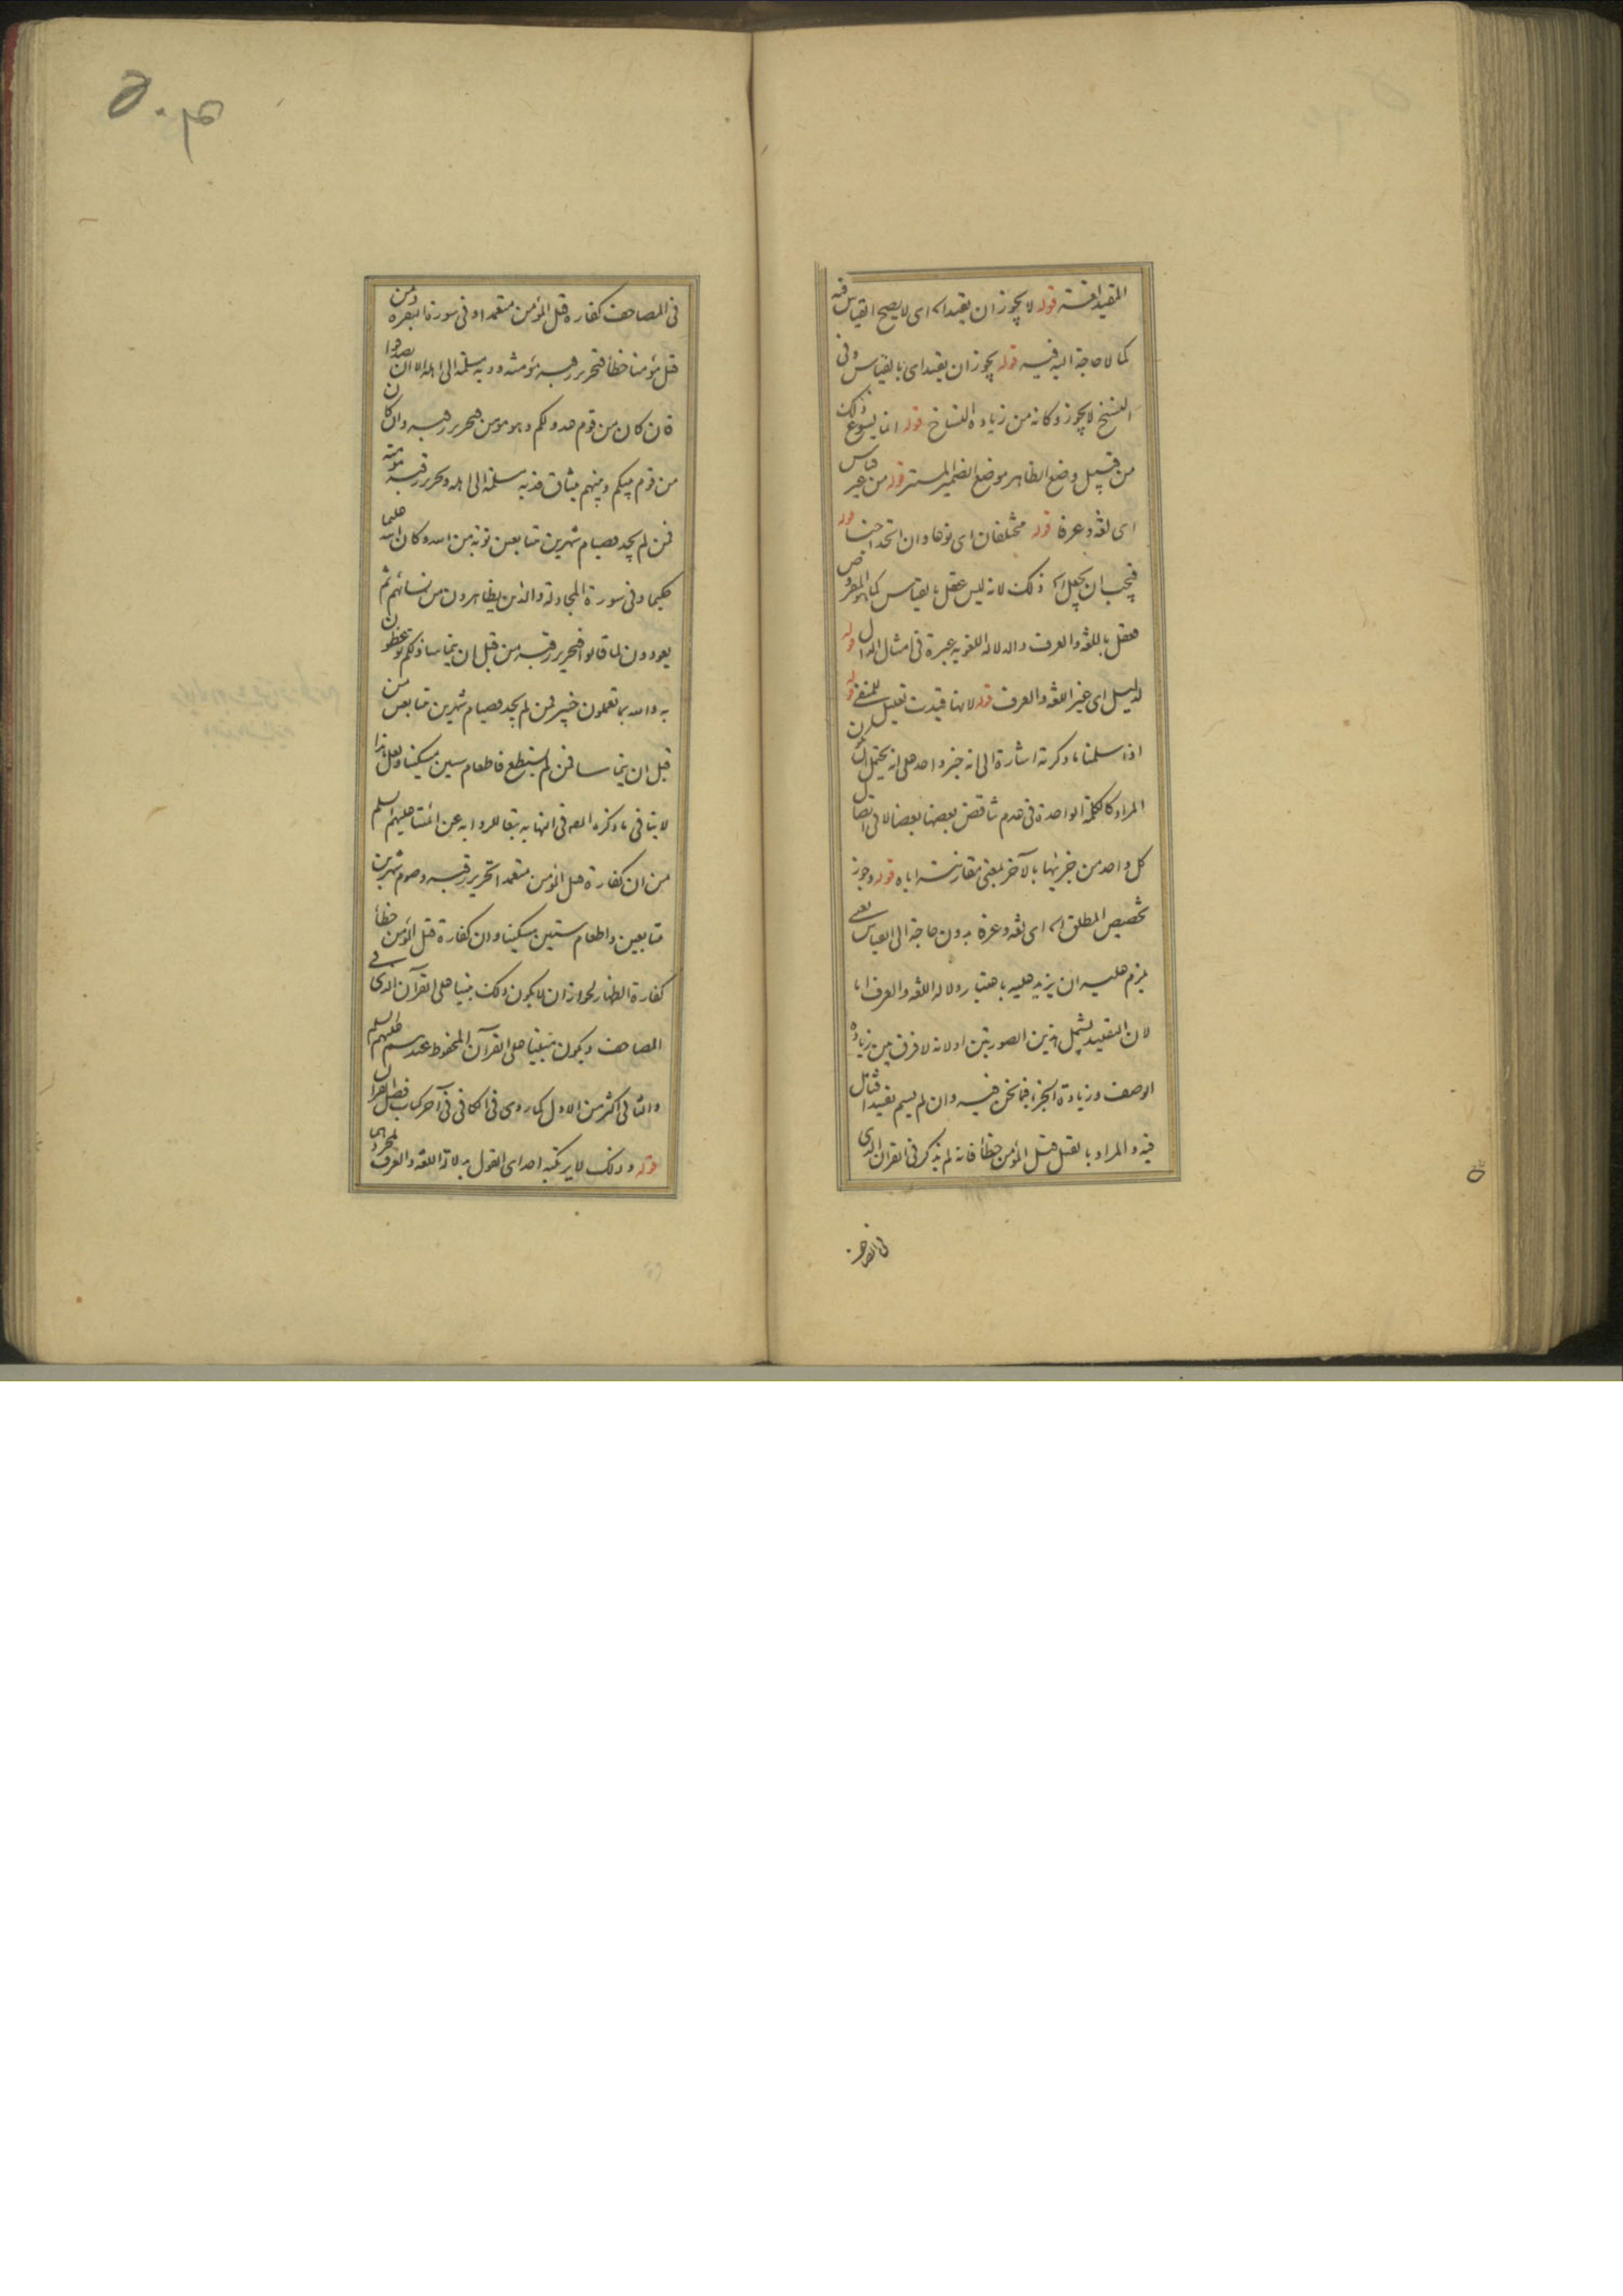 المقيد اقسته قوله لا يجوز ان يقيد اه اى لا يصح القياس فيه
كما لا حاجة اليه فيه قوله يجوز ان يقيد اى بالقياس وفى
النسخ لا يجوز وكانه من زيادة النساخ قوله انما يسوغ ذلك
من قبيل وضع الظاهر موضع الضمير المستتر قوله من غير قياس
اى لغة وعرفا قوله مختلفان اى نوعا وان اتحدا جنسا قوله
فيجب ان يجعل اه ذلك لانه ليس عقل بالقياس كما هو المفروض
فعقل باللغة والعرف والدلالة اللغوية معتبرة فى امثال قوله
لدليل اى غير اللغة والعرف قوله لانها قيدت تعليل للمنفى قوله
اذا سلمنا ما ذكرته اشارة الى انه خبر واحد على انه يحتمل ان يكون
المراد كالكلمة الواحدة فى عدم تناقض بعضها بعضا لا فى اتصال
كل واحد من جزئيها بالآخر بمعنى مقارنته اياه قوله وجوز
تخصيص المطلق اه اى لغة وعرفا بدون حاجة الى القياس يعنى
يلزم عليه ان يزيد عليه باعتبار دلالة اللغة والعرف اما
لان التقييد يشمل هذين الصورتين او لانه لا فرق بين زيادة
الوصف وزيادة الجزء فيما نحن فيه وان لم يسم تقييدا فتأمل
فيه والمراد بالقتل قتل المؤمن خطأ فانه لم يذكر فى القرآن الذى
فى المصاحف
فى المصاحف كفارة قتل المؤمن متعمدا وفى سورة البقرة ومن
قتل مؤمنا خطأ فتحرير رقبة مؤمنة ودية مسلمة الى اهله الا ان يصدقوا
فان كان من قوم عدو لكم وهو مؤمن فتحرير رقبة وان كان
من قوم بينكم وبينهم ميثاق فدية مسلمة الى اهله وتحرير رقبة مؤمنة
فمن لم يجد فصيام شهرين متتابعين توبة من الله وكان الله عليما
حكيما وفى سورة المجادلة والذين يظاهرون من نسائهم ثم
يعودون لما قالوا فتحرير رقبة من قبل ان يتماسا ذلكم توعظون
به والله بما تعملون خبير فمن لم يجد فصيام شهرين متتابعين من
قبل ان يتماسا فمن لم يستطع فاطعام ستين مسكينا ولعل هذا
لا ينافى ما ذكره المص فى النهاية تبعا للرواية عن ائمتنا عليهم السلم
من ان كفارة قتل المؤمن متعمدا تحرير رقبة وصوم شهرين
متتابعين واطعام ستين مسكينا وان كفارة قتل المؤمن خطأ
كفارة الظهار لجواز ان لا يكون ذلك مبنيا على القرآن الذى فى
المصاحف ويكون مبنيا على القرآن المخفوظ عندهم عليهم السلم
والثانى اكثر من الاول كما روى فى الكافى فى آخر كتاب فضل القرآن
قوله وذلك لا يرتكبه احد اى القول بدلالة اللغة والعرف بمجردهما